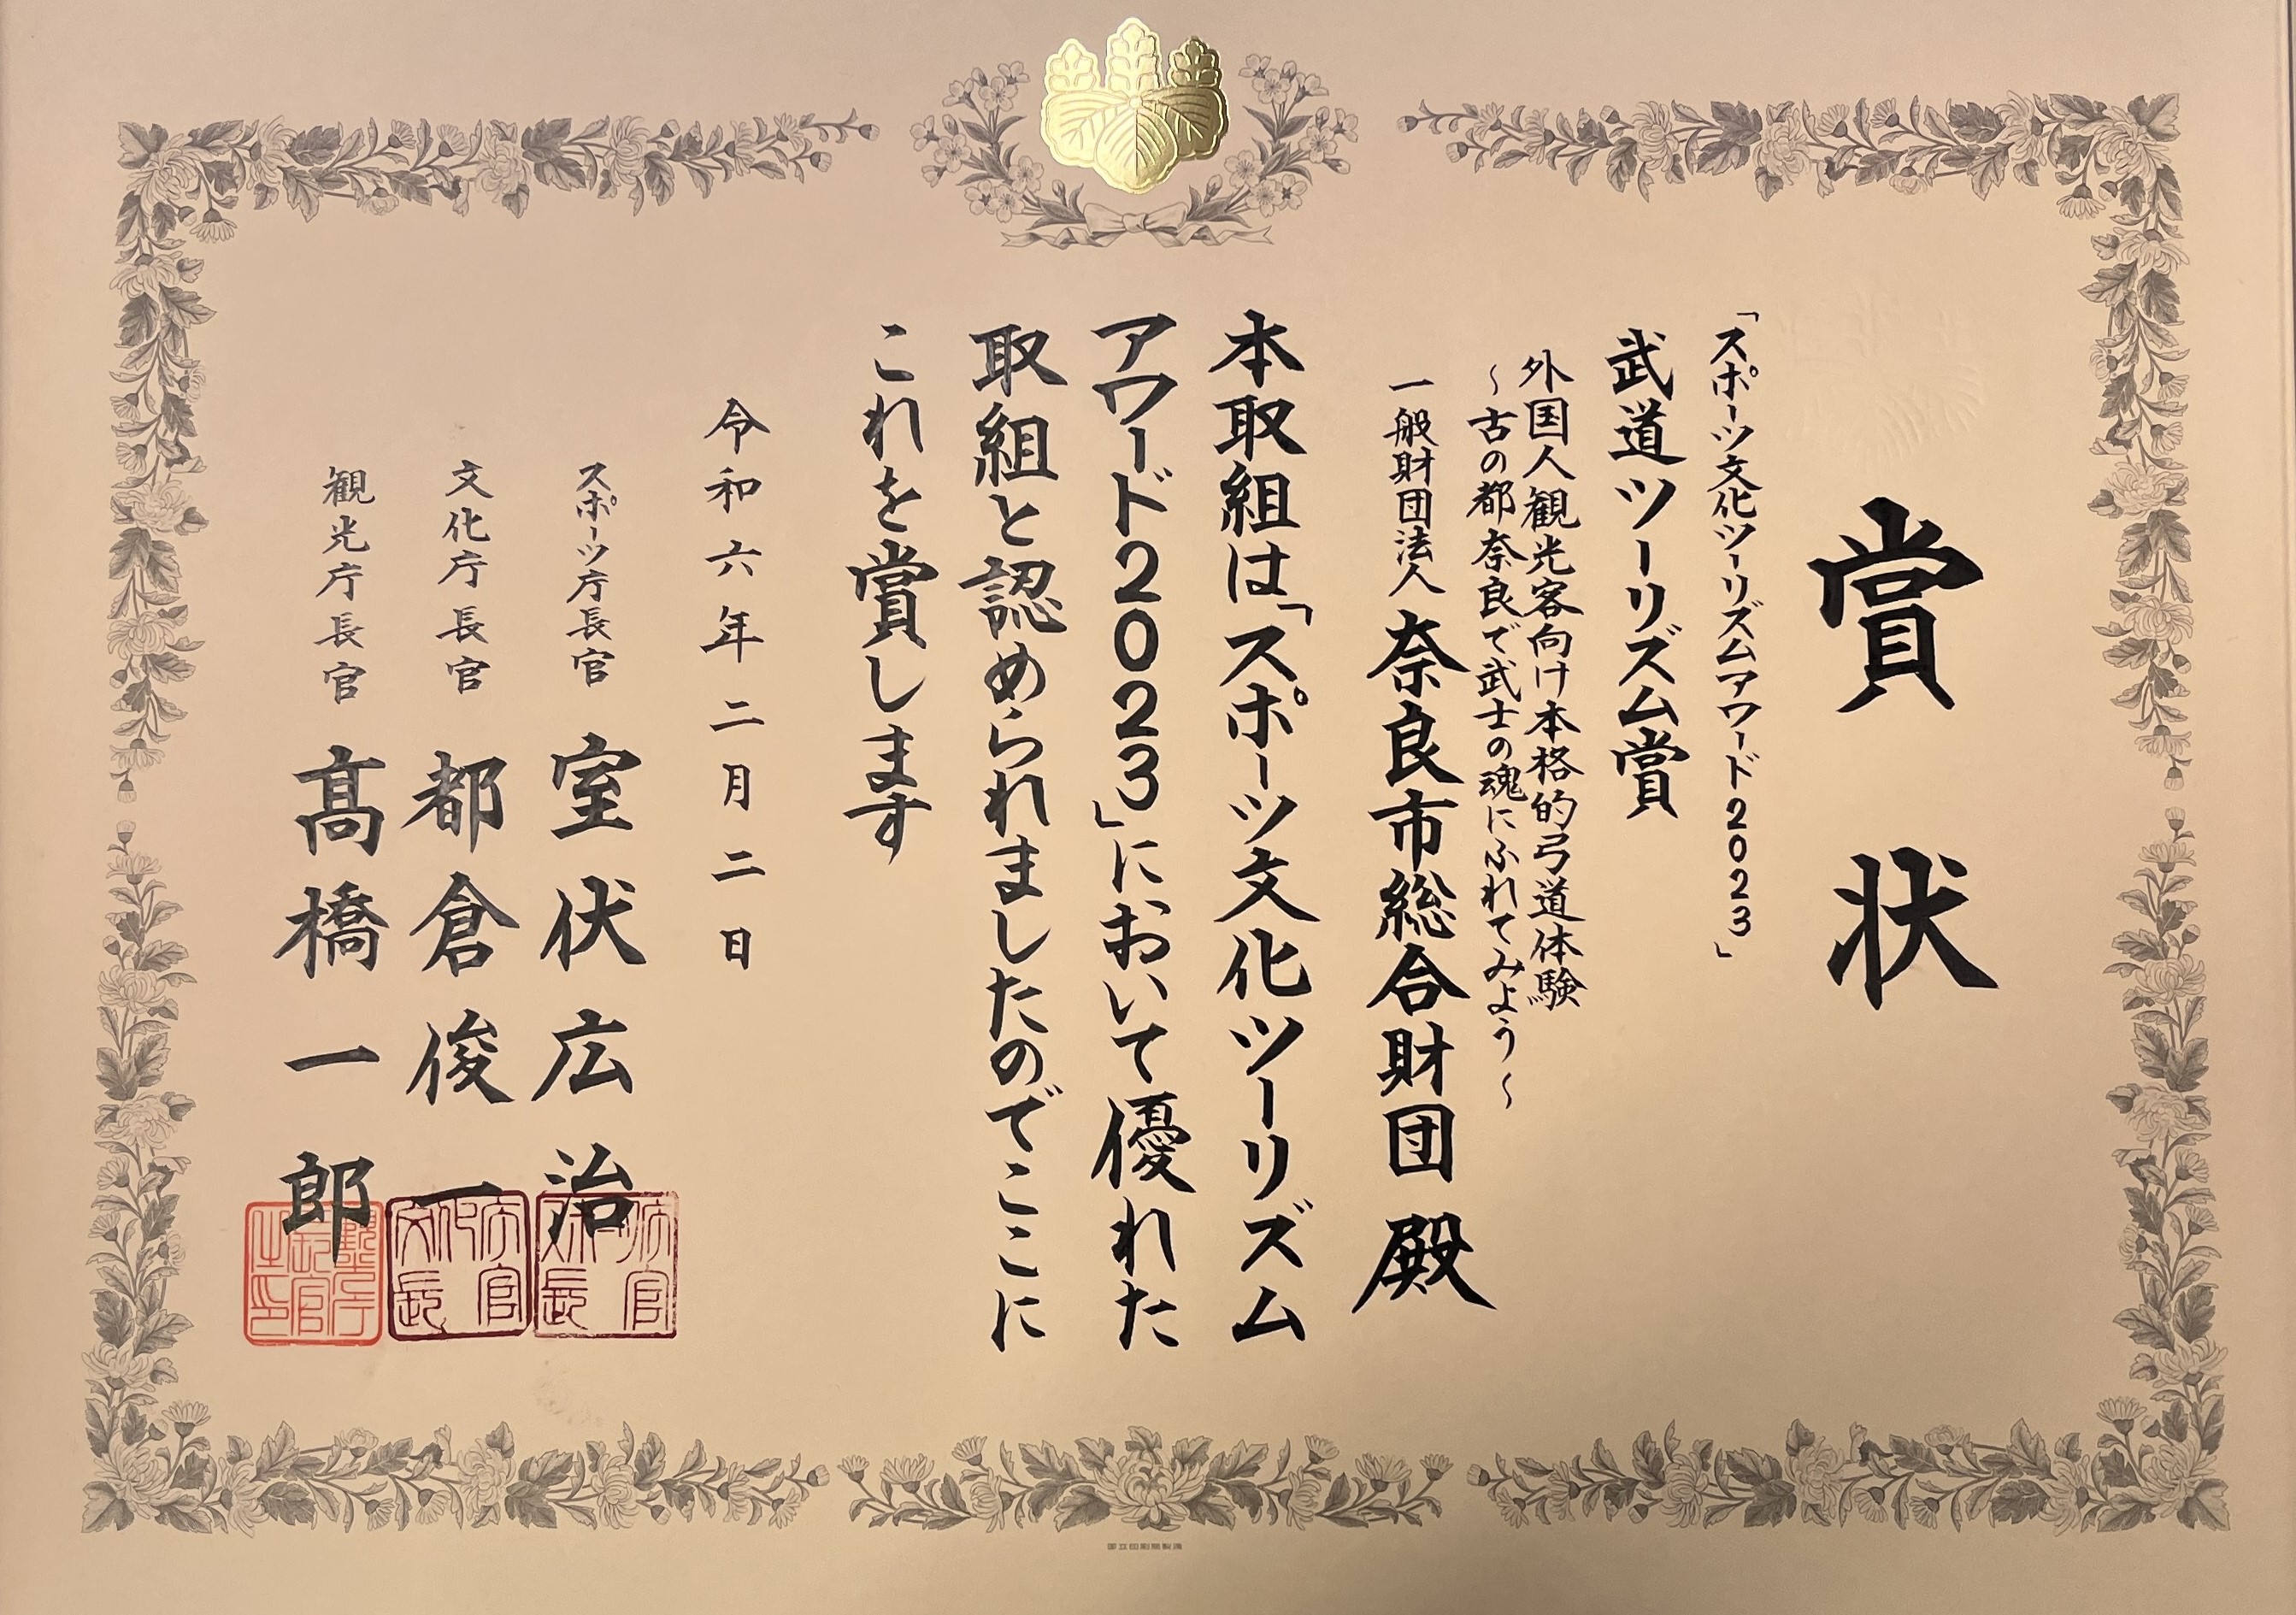 賞状
「スポーツ文化ツーリズムアワード2023」
武道ツーリズム賞
外国人観光客向け本格的弓道体験
～古の都奈良で武士の魂にふれてみよう～
一般財団法人 奈良市総合財団 殿
本取組は「スポーツ文化ツーリズム
アワード2023」において優れた
取組と認められましたのでここに
これを賞します
令和六年二月二日
スポーツ庁長官 室伏広治
文化庁長官 都倉俊一
観光庁長官 髙橋一郎
国立印刷局製造